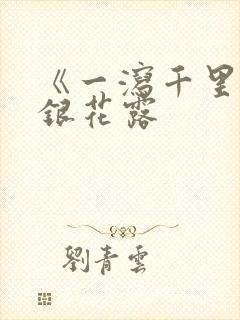 《一瀉千里
銀花露
劉青雲